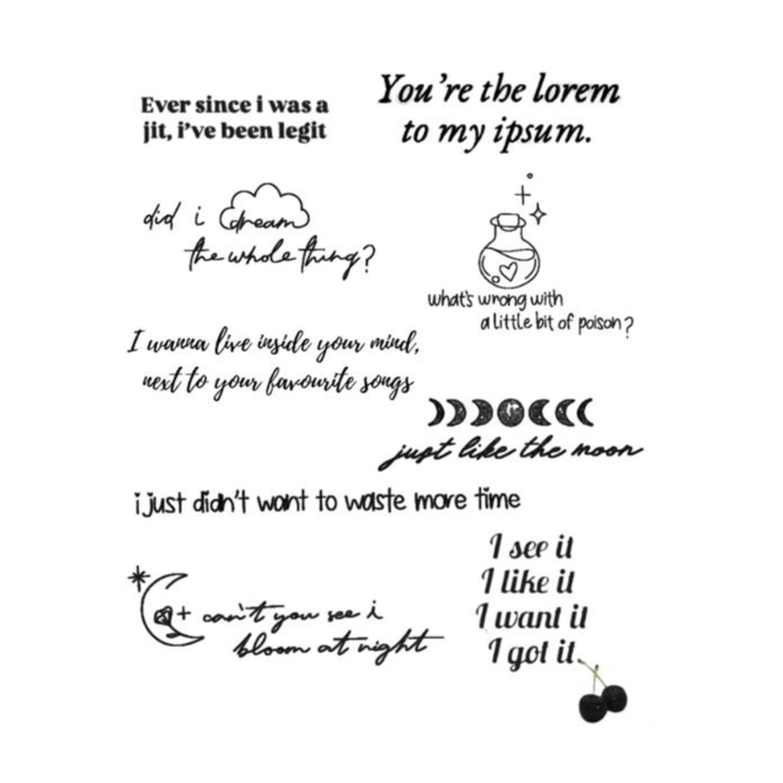 Ever since i was a
jit, i've been legit
You're the lorem
to my ipsum.
did i dream
the whole thing?
what's wrong with
a little bit of poison?
I wanna live inside your mind,
next to your favourite songs
just like the moon
i just didn't want to waste more time
I see it
I like it
I want it
I got it.
can't you see i
bloom at night